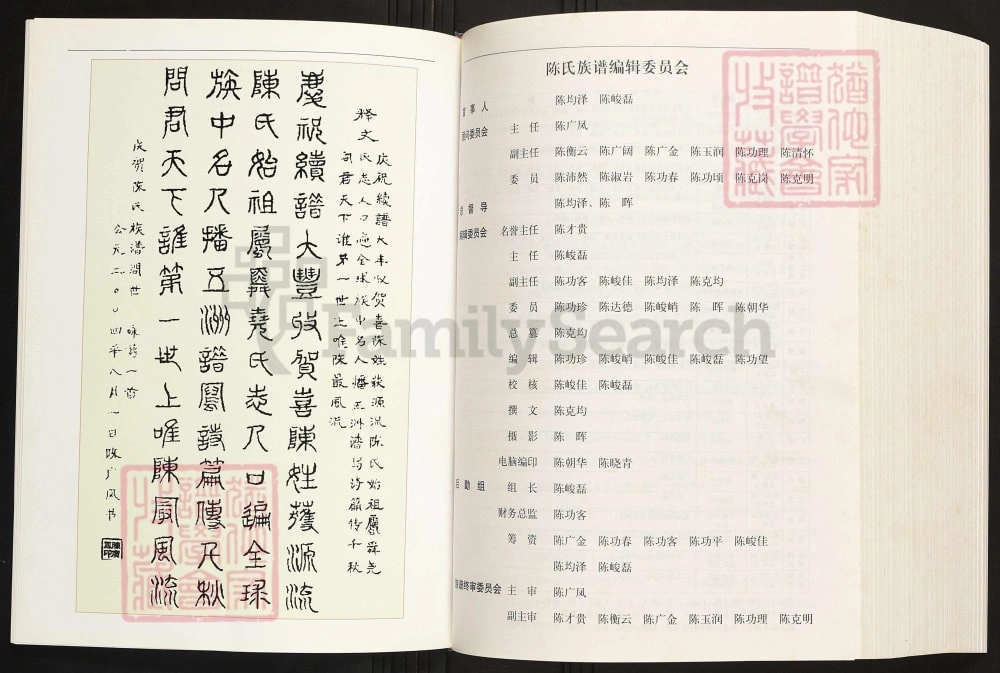 慶祝續譜大豐收賀喜陳姓獲源流
陳氏始祖屬舜堯氏志人口遍全球
族中名人播五洲譜寫詩篇傳千秋
問君天下誰第一世上唯陳最風流
释文
庆祝续谱大丰收贺喜陈姓获源流陈氏始祖属舜尧
氏志人口遍全球族中名人播五洲谱写诗篇传千秋
问君天下谁第一世上唯陈最风流
庆贺陈氏族谱问世 咏诗一首
公元二00四年八月一日陈广凤书
陈氏族谱编辑委员会
事 人 陈均泽 陈峻磊
顾问委员会 主 任 陈广凤
副主任 陈衡云 陈广阔 陈广金 陈玉润 陈功理 陈清怀
委 员 陈沛然 陈淑岩 陈功春 陈功顷 陈克岗 陈克明
总 督 导 陈均泽、陈 晖
编辑委员会 名誉主任 陈才贵
主 任 陈峻磊
副主任 陈功客 陈峻佳 陈均泽 陈克均
委 员 陈功珍 陈达德 陈峻峭 陈 晖 陈朝华
总 纂 陈克均
编 辑 陈功珍 陈峻峭 陈峻佳 陈峻磊 陈功望
校 核 陈峻佳 陈峻磊
撰 文 陈克均
摄 影 陈 晖
电脑编印 陈朝华 陈晓青
后 勤 组 组 长 陈峻磊
财务总监 陈功客
筹 资 陈广金 陈功春 陈功客 陈功平 陈峻佳
陈均泽 陈峻磊
终审委员会 主 审 陈广凤
副主审 陈才贵 陈衡云 陈广金 陈玉润 陈功理 陈克明
FamilySearch